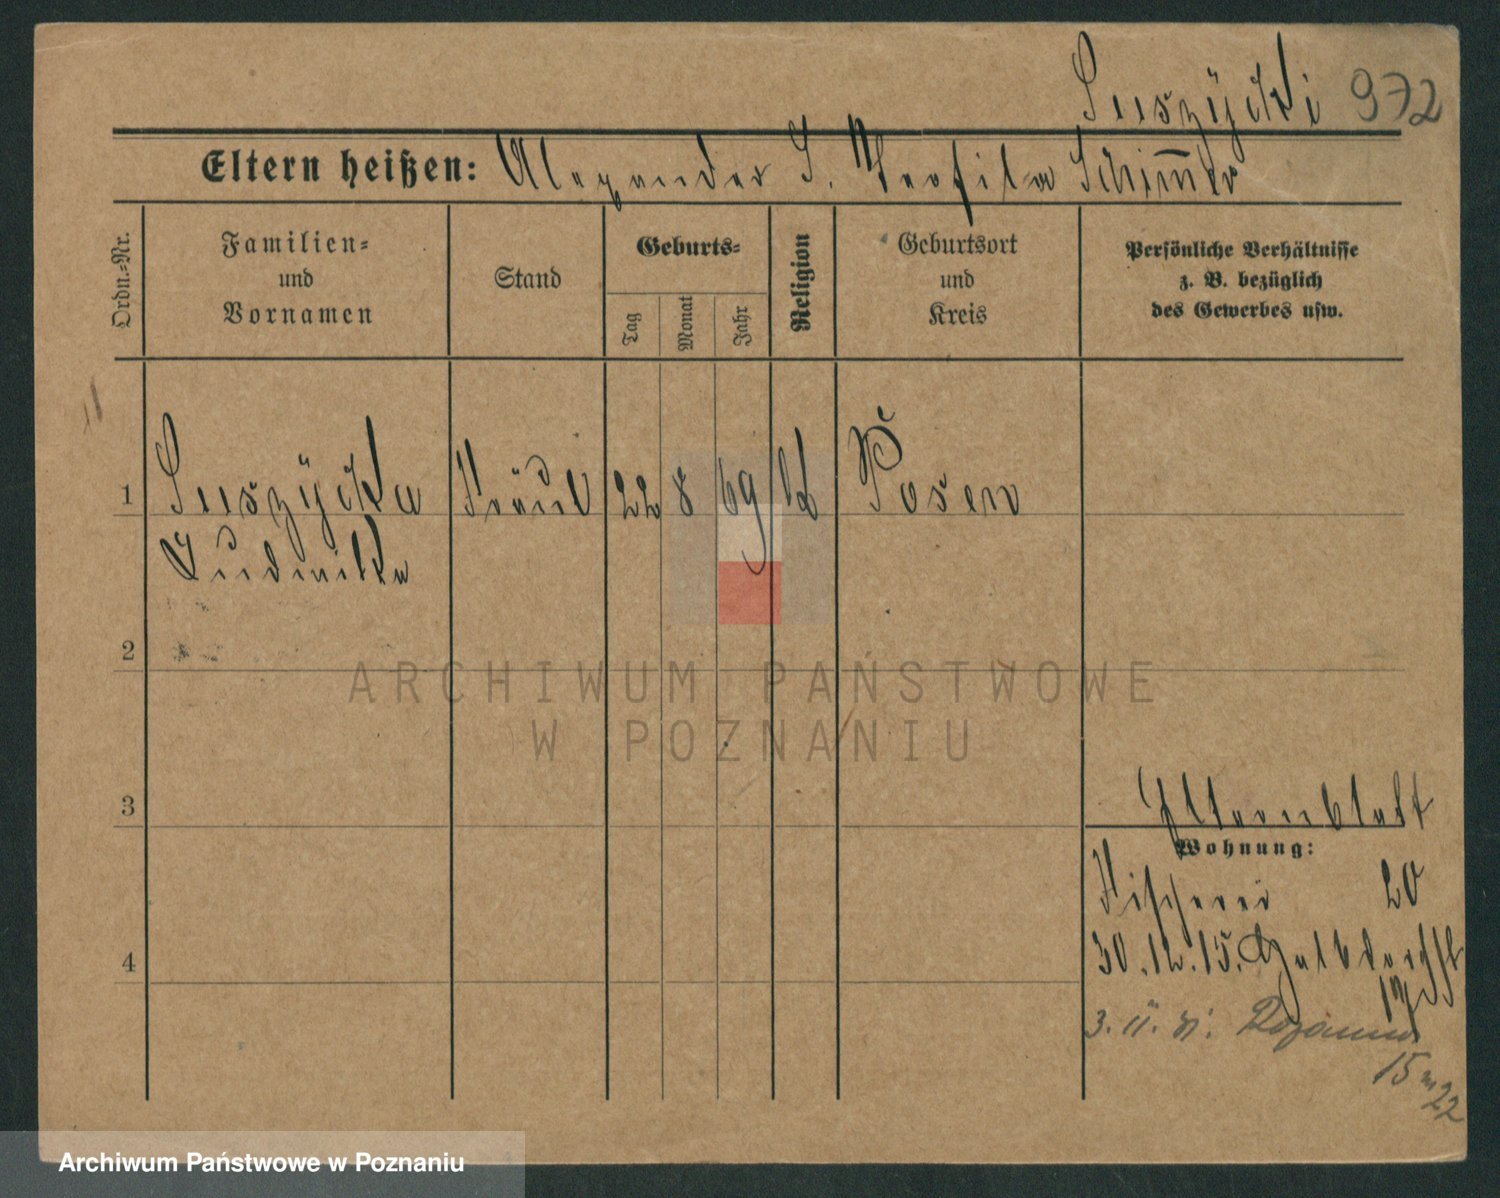 Suszÿcki 972
Eltern heißen: Alexander S. Teofila Schim̅er
Ordn.-Nr.
Familien-
und
Vornamen
Stand
Geburts-
Tag
Monat
Jahr
Religion
Geburtsort
und
Kreis
Persönliche Verhältnisse
z. B. bezüglich
des Gewerbes usw.
1 Suszÿcka Fräul 22 8 69 Posen
Ludwika
2
ARCHIWUM PAŃSTWOWE
W POZNANIU
3
Elternblatt
Wohnung:
Fischerei 20
4
30.12.15.
3. II.
15
22
Archiwum Państwowe w Poznaniu